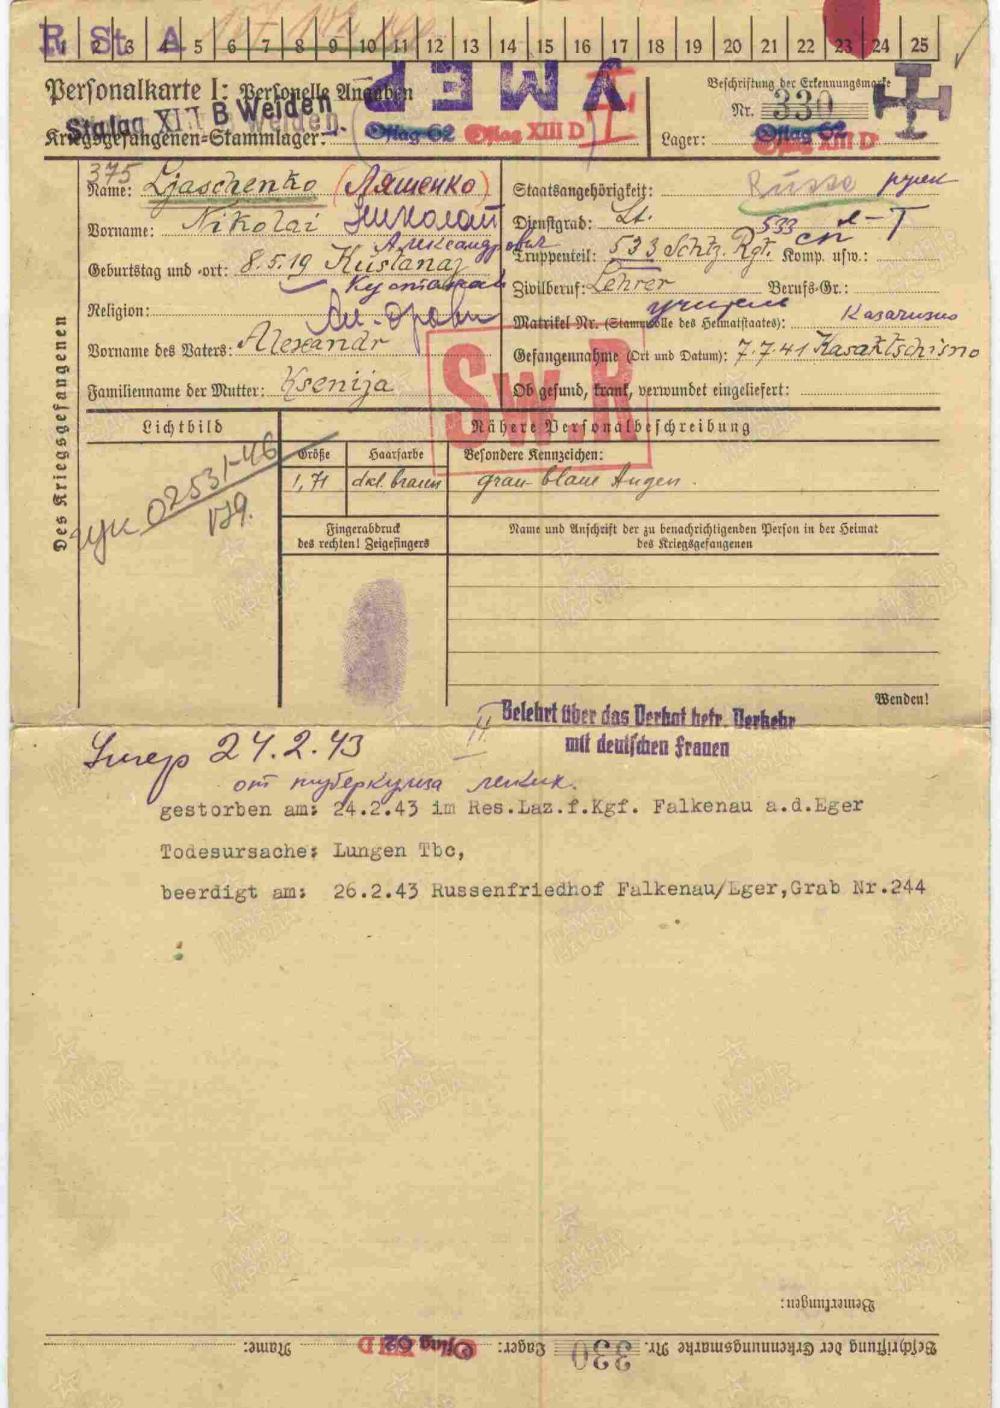 R St A
1 2 3 4 5 6 7 8 9 10 11 12 13 14 15 16 17 18 19 20 21 22 23 24 25
Personalkarte I: Personelle Angaben
УМЕР
Beschriftung der Erkennungsmarke
Nr. 330
Stalag XIII B Weiden
Kriegsgefangenen-Stammlager: Oflag 62 Oflag XIII D
Lager: Oflag 62 Oflag XIII D
375
Name: Ljaschenko (Ляшенко)
Staatsangehörigkeit: Russe русск
Vorname: Nikolai Николай
Александрович
Dienstgrad: Lt. л-т
533 сп
Geburtstag und -ort: 8.5.19 Kustanaj
Кустанай
Truppenteil: 533 Schtz. Rgt. Komp. usw.:
Zivilberuf: Lehrer Berufs-Gr.:
учитель
Religion:
Matrikel Nr. (Stammrolle des Heimatstaates):
Vorname des Vaters: Alexandr
Gefangennahme (Ort und Datum): 7.7.41 Kasaktschisno
Familienname der Mutter: Ksenija
Ob gesund, krank, verwundet eingeliefert:
Sw.R
Des Kriegsgefangenen
Lichtbild
Nähere Personalbeschreibung
Größe Haarfarbe Besondere Kennzeichen:
1,71 dkl. braun grau blaue Augen.
02531-46
179.
Fingerabdruck
des rechten! Zeigefingers
Name und Anschrift der zu benachrichtigenden Person in der Heimat
des Kriegsgefangenen
Wenden!
Belehrt über das Verbot betr. Verkehr
mit deutschen Frauen
Умер 24.2.43
от туберкулеза легких.
gestorben am: 24.2.43 im Res.Laz.f.Kgf. Falkenau a.d.Eger
Todesursache: Lungen Tbc,
beerdigt am: 26.2.43 Russenfriedhof Falkenau/Eger,Grab Nr.244
Bemerkungen:
Beschriftung der Erkennungsmarke Nr. 330 Lager: Oflag 62 XIII D Name:
ПАМЯТЬ НАРОДА